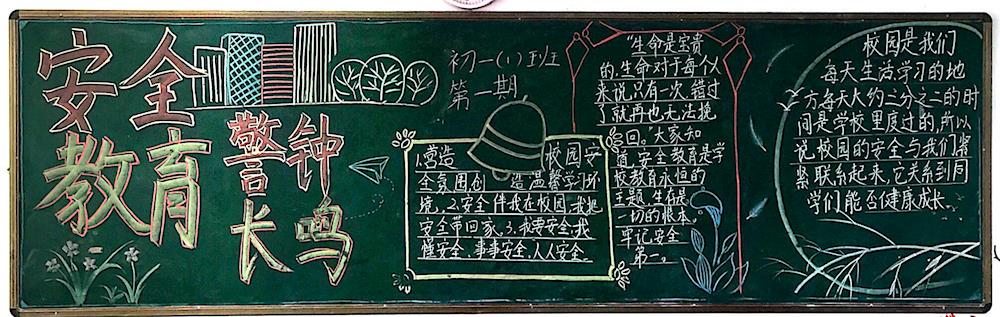 安全
教育
警钟
长鸣
初一(1)班
第一期
1.营造 校园安
全氛围创 造温馨学习环
境。2.安全伴我在校园,我把
安全带回家。3.我要安全,我
懂安全、事事安全、人人安全。
“生命是宝贵
的,生命对于每个人
来说只有一次,错过
了就再也无法挽
回。”大家知
道,安全教育是学
校教育永恒的
主题,生存是
一切的根本。
牢记安全
第一。
校园是我们
每天生活学习的地
方每天大约三分之二的时
间是学校里度过的,所以
说校园的安全与我们紧
紧联系起来,它关系到同
学们能否健康成长。